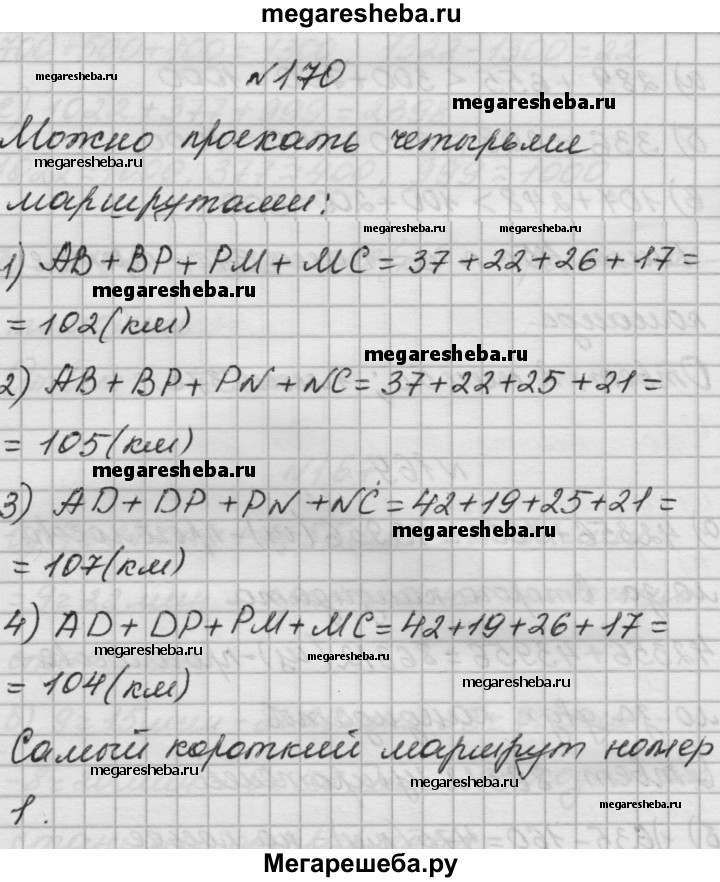 megaresheba.ru
№170
megaresheba.ru
megaresheba.ru
Можно проехать четырьмя
megaresheba.ru
маршрутами:
megaresheba.ru megaresheba.ru
1) AB+BP+PM+MC=37+22+26+17=
megaresheba.ru
=102(км)
megaresheba.ru
2) AB+BP+PN+NC=37+22+25+21=
=105(км)
megaresheba.ru
3) AD+DP+PN+NC=42+19+25+21=
megaresheba.ru
=107(км)
4) AD+DP+PM+MC=42+19+26+17=
megaresheba.ru megaresheba.ru
=104(км)
megaresheba.ru
Самый короткий маршрут номер
megaresheba.ru megaresheba.ru
1.
megaresheba.ru
Мегарешеба.ру